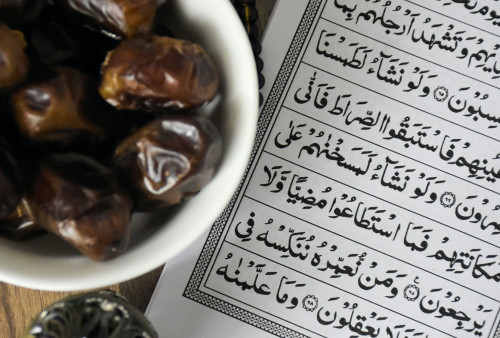 ـدِيهِمْ وَتَشْهَدُ اَرْجُلُهُمْ بِمَا
ـكْسِبُوْنَ ۝٦٥ وَلَوْ نَشَآءُ لَطَمَسْنَا
ـعْيُنِهِمْ فَاسْتَبَقُوا الصِّرَاطَ فَاَنّٰى
ـصِرُوْنَ ۝٦٦ وَلَوْ نَشَآءُ لَمَسَخْنٰهُمْ عَلٰى
مَكَانَتِهِمْ فَمَا اسْتَطَاعُوْا مُضِيًّا وَّلَا
يَرْجِعُوْنَ ۝٦٧ وَمَنْ نُّعَمِّرْهُ نُنَكِّسْهُ فِى
ـلَا يَعْقِلُوْنَ ۝٦٨ وَمَا عَلَّمْنٰهُ